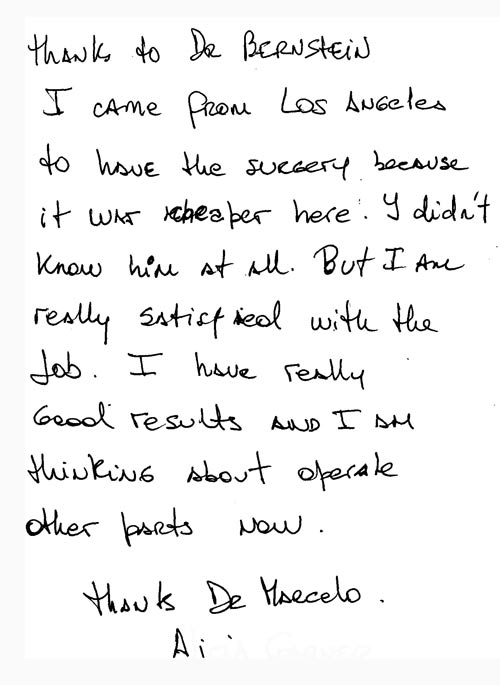 thanks to DR BERNSTEIN
I came from Los Angeles
to have the surgery because
it was cheaper here. I didn't
know him at all. But I am
really satisfied with the
Job. I have really
Good results and I am
thinking about operate
other parts now.
thanks DR Marcelo.